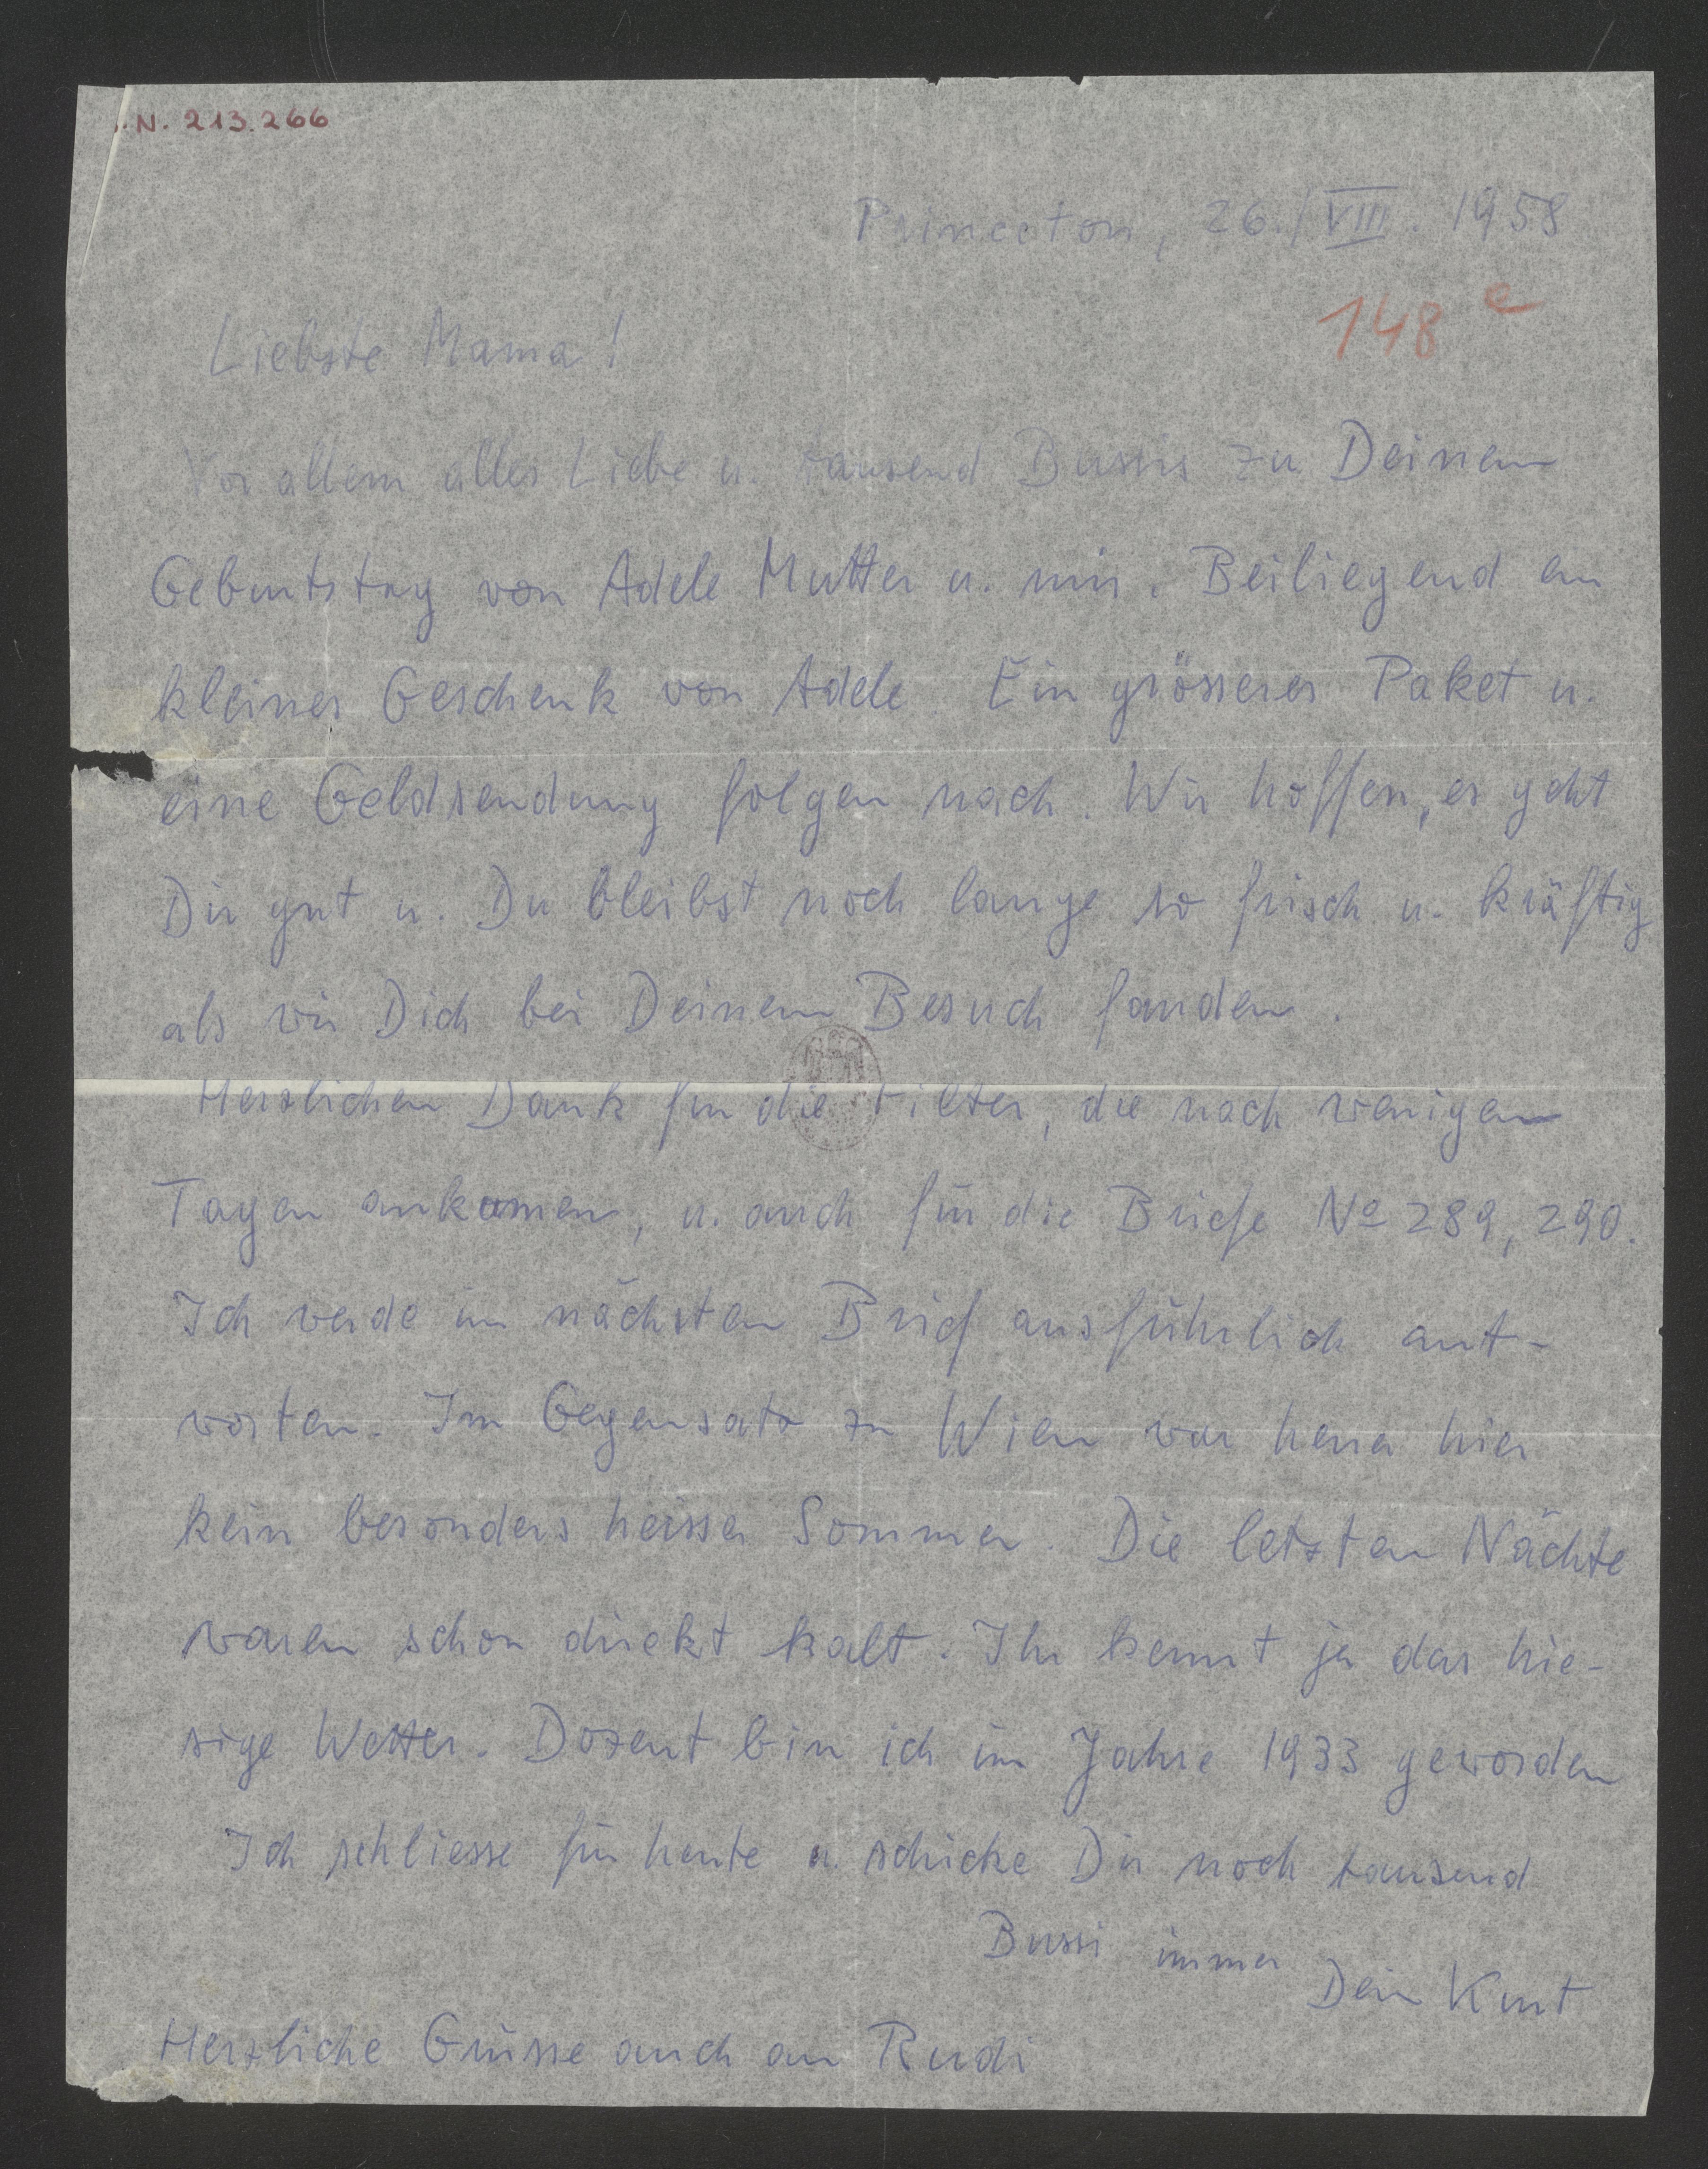 I.N. 213.266
Princeton, 26./VIII. 1958
148 e
Liebste Mama!
Vor allem alles Liebe u. tausend Bussis zu Deinem
Geburtstag von Adele Mutter u. mir. Beiliegend ein
kleines Geschenk von Adele Ein grösseres Paket u.
eine Geldsendung folgen nach. Wir hoffen, es geht
Dir gut u. Du bleibst noch lange so frisch u. kräftig
als wir Dich bei Deinem Besuch fanden.
Herzlichen Dank für die Filter, die nach wenigen
Tagen ankamen, u. auch für die Briefe No 289, 290.
Ich werde im nächsten Brief ausführlich ant-
worten. Im Gegensatz zu Wien war heuer hier
kein besonders heisser Sommer. Die letzten Nächte
waren schon direkt kalt. Ihr kennt ja das hie-
sige Wetter. Dozent bin ich im Jahre 1933 geworden
Ich schliesse für heute u. schicke Dir noch tausend
Bussi immer Dein Kurt
Herzliche Grüsse auch an Rudi